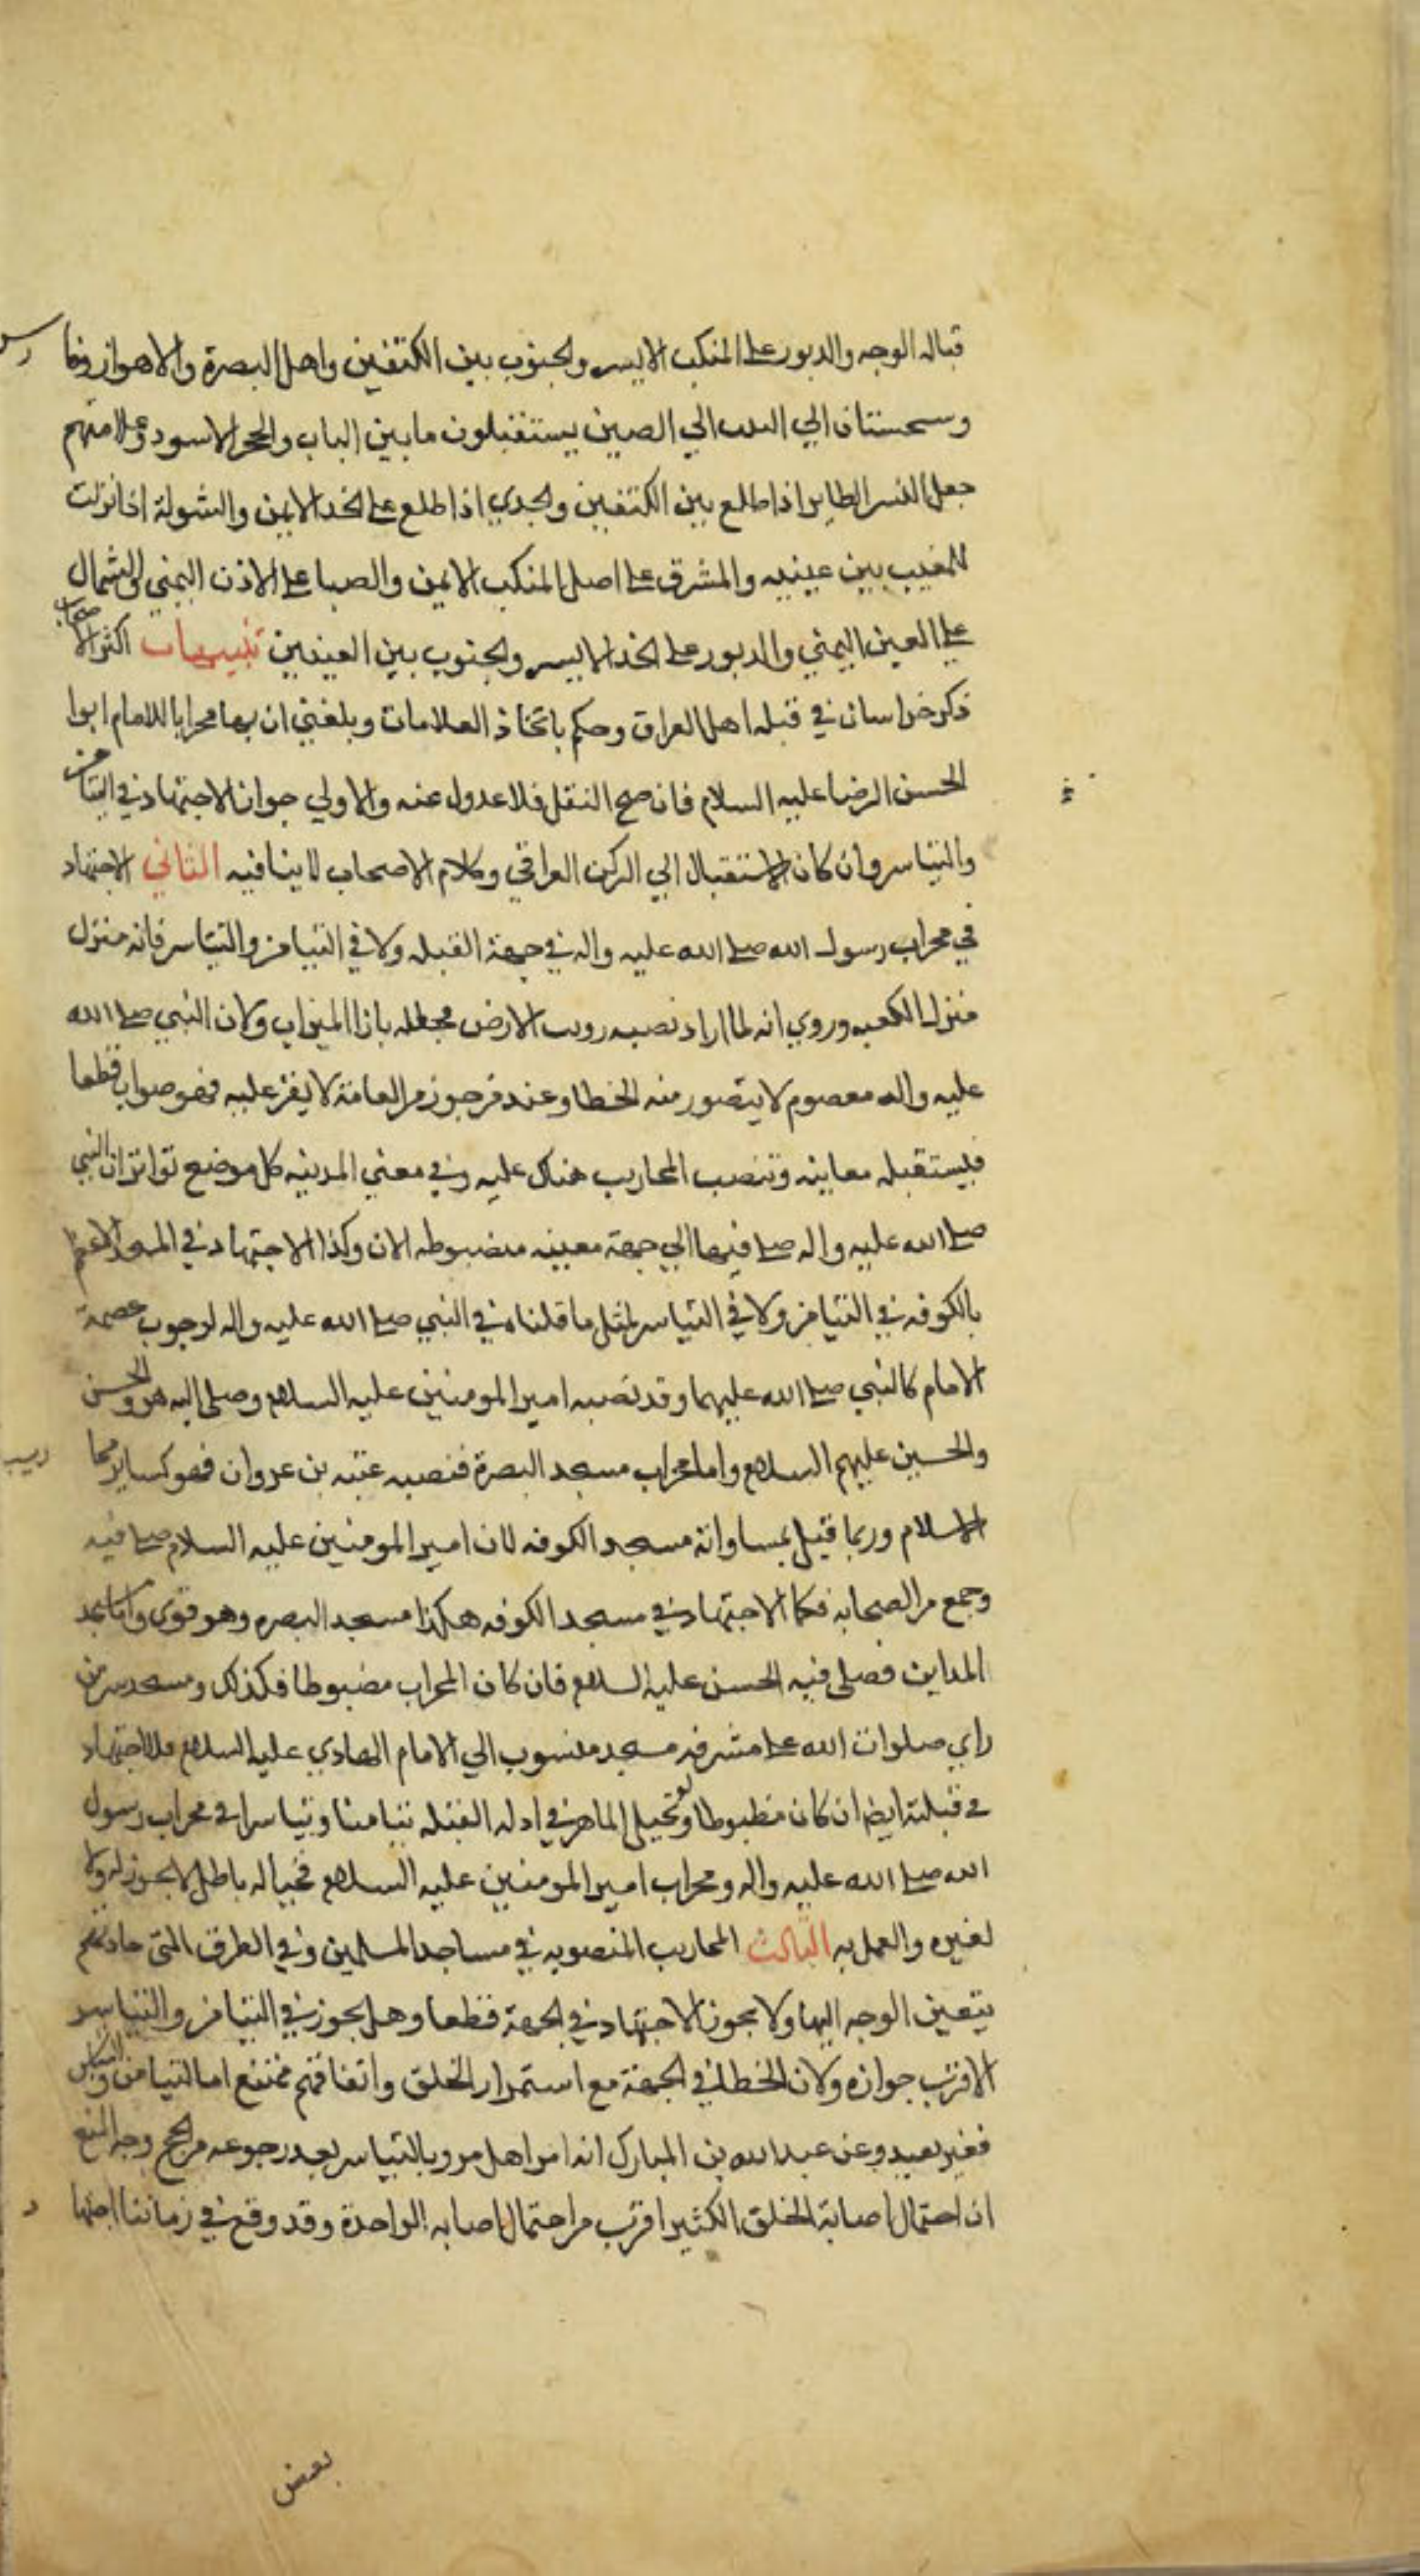 قباله الوجه والدبور على المنكب الايسر والجنوب بين الكتفين واهل البصرة والاهواز وفارس
وسجستان الي التبت الي الصين يستقبلون ما بين الباب والحجر الاسود وعلامتهم
جعل النسر الطاير اذا طلع بين الكتفين والجدي اذا طلع على الخد الايمن والشولة اذا نزلت
للمغيب بين عينيه والمشرق على اصل المنكب الايمن والصبا على الاذن اليمني والشمال
على العين اليمني والدبور على الخد الايسر والجنوب بين العينين تنبيهات اكثر الاصحاب
ذكر خراسان في قبله اهل العراق وحكم باتحاد العلامات وبلغني ان بها محرابا للامام ابوا
الحسن الرضا عليه السلام فان صح النقل فلا عدول عنه والاولي جواز الاجتهاد في التيامن
والتياسر وان كان الاستقبال الي الركن العراقي وكلام الاصحاب لا ينافيه الثاني الاجتهاد
في محراب رسول الله صلى الله عليه واله في جهة القبله ولا في التيامن والتياسر فانه منزل
منزلـ الكعبه وروي انه لما اراد نصبه زويت الارض فجعله بازا الميزاب ولان النبي صلى الله
عليه واله معصوم لا يتصور منه الخطا وعند من جوز من العامة لا يقر عليه فهو صواب قطعا
فيستقبله معاينه وتنصب المحاريب هناك عليه وفي معني المدينه كل موضع تواتر ان النبي
صلى الله عليه واله صلى فيها الي جهة معينه مضبوطه الان وكذا الاجتهاد في المسجد الاعظم
بالكوفه في التيامن ولا في التياسر لمثل ما قلناه في النبي صلى الله عليه واله لوجوب عصمة
الامام كالنبي صلى الله عليهما وقد نصبه امير المومنين عليه السلام وصلى اليه هو والحسن
والحسين عليهم السلام واما محراب مسجد البصرة فنصبه عتبه بن غزوان فهو كساير محاريب
الاسلام وربما قيل بمساواة مسجد الكوفه لان امير المومنين عليه السلام صلى فيه
وجمع من الصحابه فكما الاجتهاد في مسجد الكوفه هكذا مسجد البصره وهو قوي واما مسجد
المداين فصلى فيه الحسن عليه السلام فان كان المحراب مضبوطا فكذلك ومسجد سر من
راي صلوات الله على مشرفه مسجد منسوب الي الامام الهادي عليه السلام فلا اجتهاد
في قبلته ايضا ان كان مظبوطا ولو تخيل الماهر في ادله القبله تيامنا وتياسرا في محراب رسول
الله صلى الله عليه واله ومحراب امير المومنين عليه السلام فخياله باطل لا يجوز له ولا
لغيره والعمل به الثالث المحاريب المنصوبه في مساجد المسلمين وفي الطرق التي جادتهم
يتعين الوجه اليها ولا يجوز الاجتهاد في الجهة قطعا وهل يجوز في التيامن والتياسر
الاقرب جوازه ولان الخطا في الجهة مع استمرار الخلق واتفاقهم ممتنع اما التيامن والتياسر
فغير بعيد وعن عبد الله بن المبارك انه امر اهل مرو بالتياسر بعد رجوعه من الحج وجه المنع
ان احتمال اصابة الخلق الكثير اقرب من احتمال اصابه الواحدة وقد وقع في زماننا اجتهاد
بعض